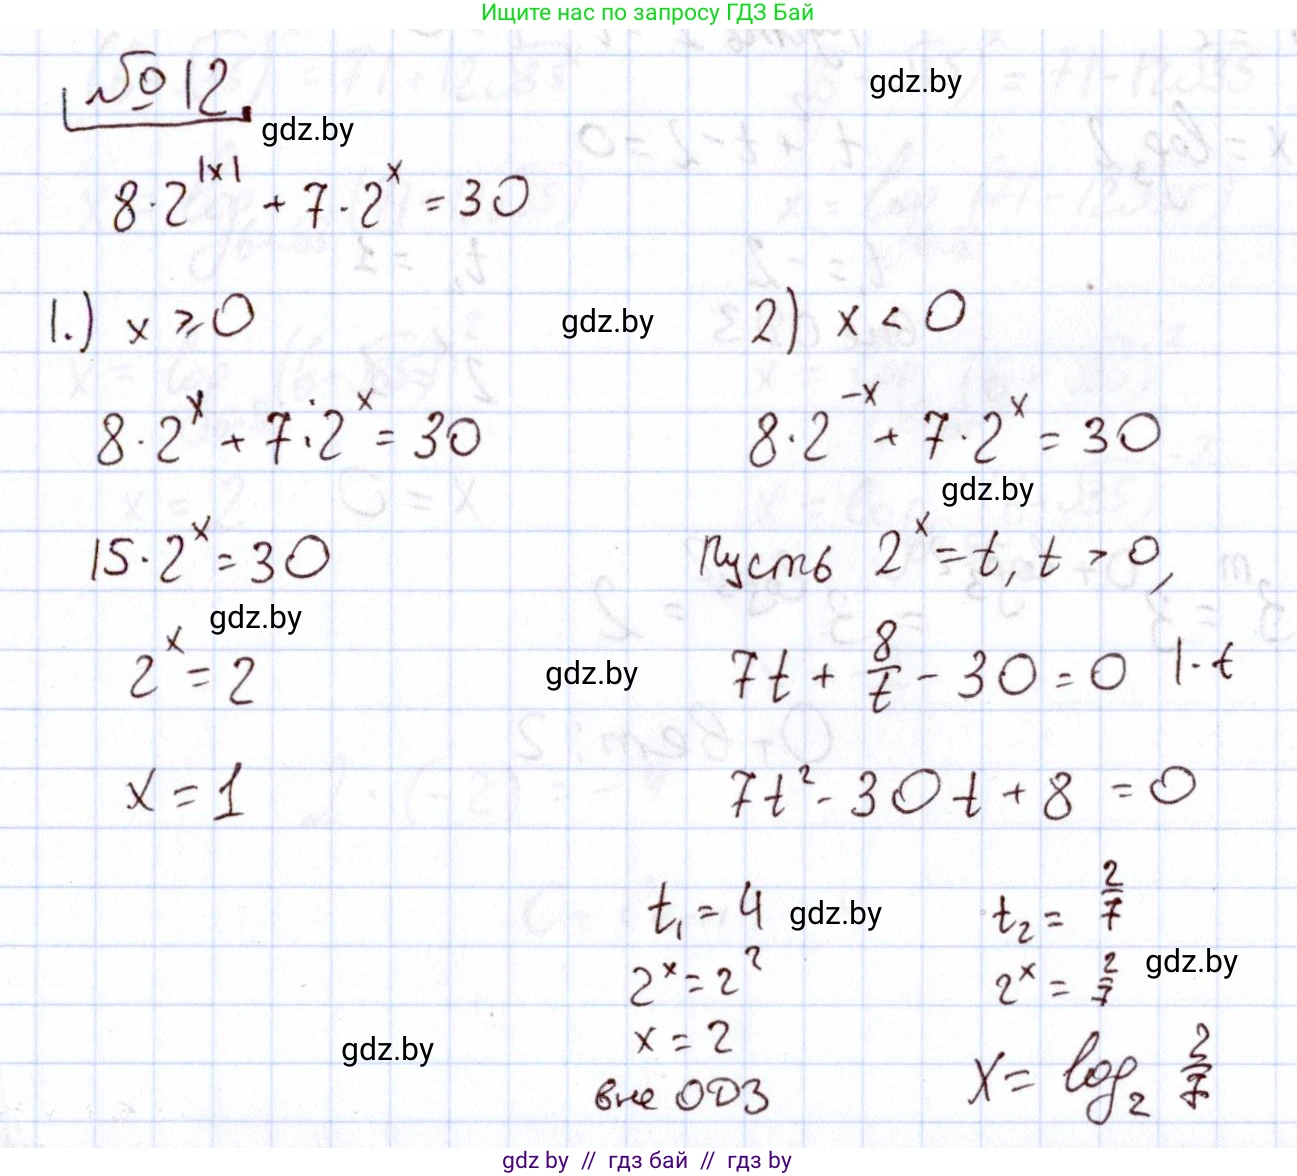 Ищите нас по запросу ГДЗ Бай
№ 12.
gdz.by
gdz.by
8·2^|x| + 7·2^x = 30
1.) x ≥ 0
gdz.by
2) x < 0
8·2^x + 7·2^x = 30
8·2^-x + 7·2^x = 30
gdz.by
15·2^x = 30
Пусть 2^x = t, t > 0,
gdz.by
2^x = 2
gdz.by
7t + 8/t - 30 = 0 |·t
x = 1
7t² - 30t + 8 = 0
t₁ = 4
gdz.by
t₂ = 2/7
2^x = 2²
2^x = 2/7
gdz.by
gdz.by
x = 2
x = log₂ 2/7
вне ОДЗ
gdz by // гдз бай // гдз by